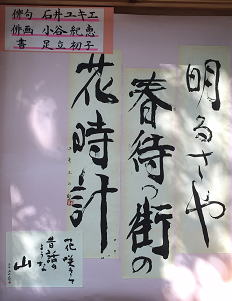 俳句 石井ユキエ
俳画 小谷紀恵
書 足立初子
明るさや
春待つ街の
花時計
花咲く
昔話の
ような
山